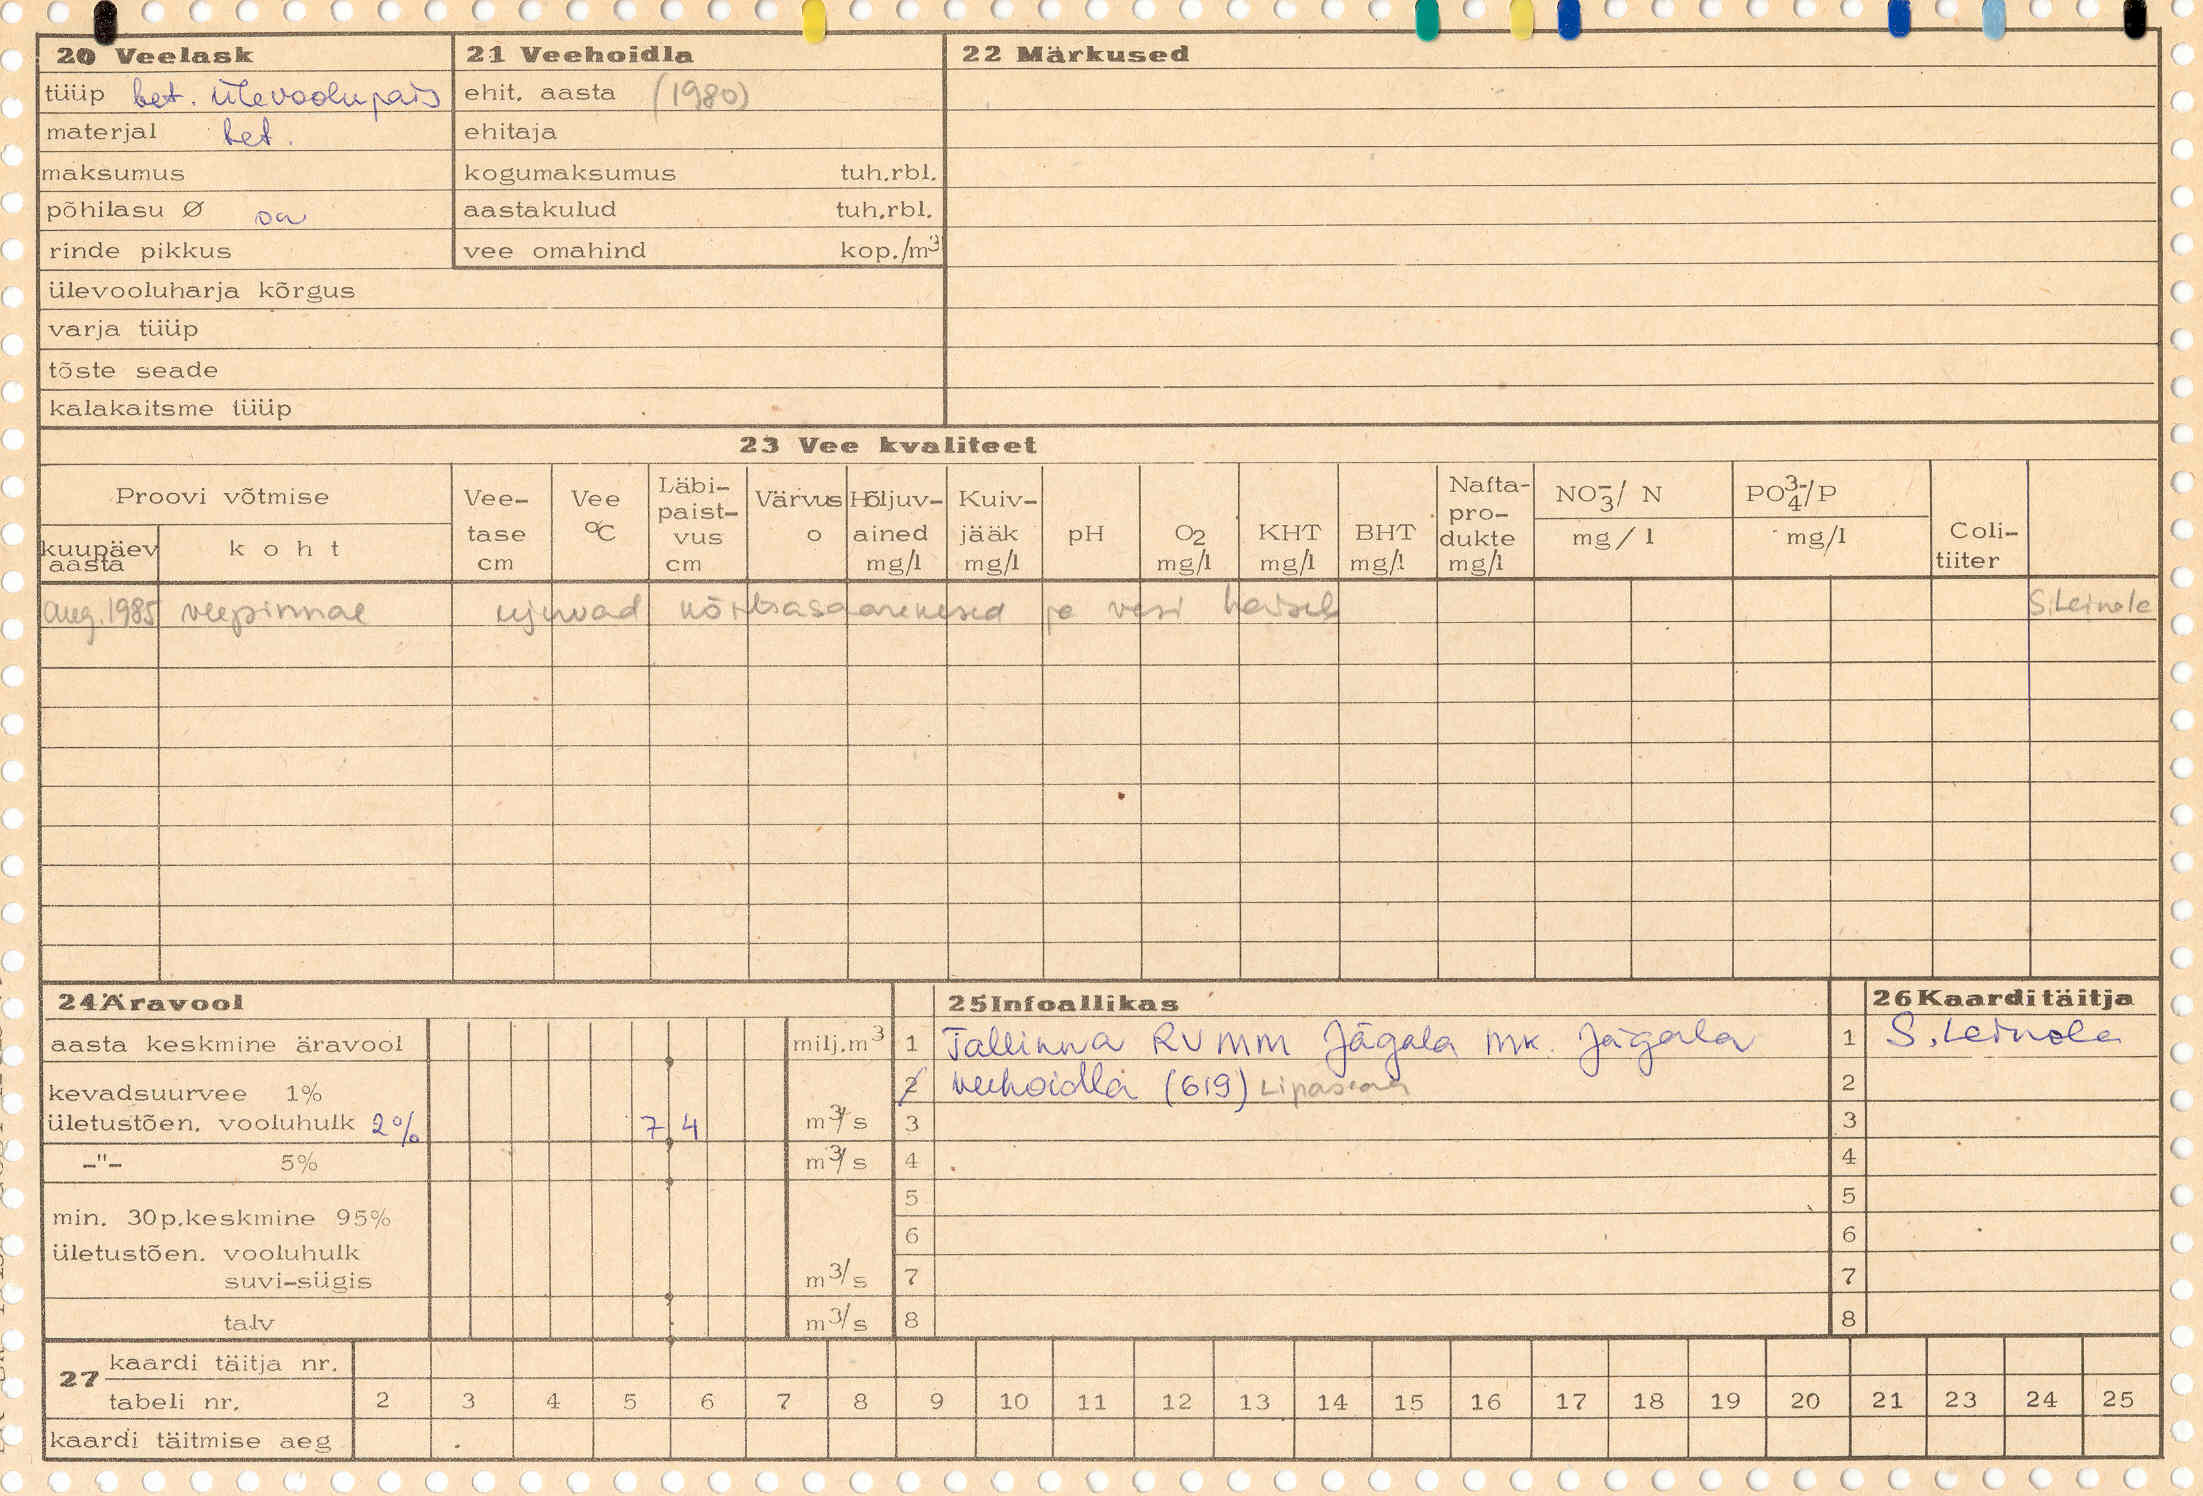 20 Veelask
tüüp bet. ülevoolupais
materjal bet.
maksumus
põhilasu Ø
rinde pikkus
ülevooluharja kõrgus
varja tüüp
tõste seade
kalakaitsme tüüp
21 Veehoidla
ehit. aasta (1980)
ehitaja
kogumaksumus tuh.rbl.
aastakulud tuh.rbl.
vee omahind kop./m³
22 Märkused
23 Vee kvaliteet
Proovi võtmise
kuupäev aasta
koht
Vee-tase cm
Vee °C
Läbi-paist-vus cm
Värvus o
Hõljuv-ained mg/l
Kuiv-jääk mg/l
pH
O₂ mg/l
KHT mg/l
BHT mg/l
Nafta-pro-dukte mg/l
NO₃⁻/ N mg/l
PO₄³⁻/P mg/l
Coli-tiiter
aug. 1985 veepinnal ujuvad ja vesi haiseb S. Leinola
24 Äravool
aasta keskmine äravool milj.m³
kevadsuurvee 1%
ületustõen. vooluhulk 2% 7 4 m³/s
-"- 5% m³/s
min. 30p.keskmine 95%
ületustõen. vooluhulk
suvi-sügis m³/s
talv m³/s
25 Infoallikas
1 Tallinna RV MM Jägala MK. Jägala
2 veehoidla (619)
3
4
5
6
7
8
26 Kaardi täitja
1 S. Leinola
2
3
4
5
6
7
8
27
kaardi täitja nr.
tabeli nr. 2 3 4 5 6 7 8 9 10 11 12 13 14 15 16 17 18 19 20 21 23 24 25
kaardi täitmise aeg